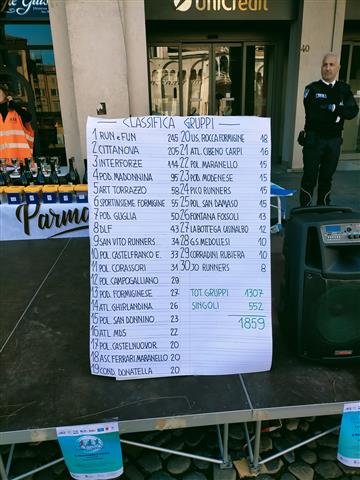 UniCredit
40
CLASSIFICA GRUPPI
1 RUN e FUN 245
2 CITTANOVA 205
3 INTERFORZE 114
4 POD. MADONNINA 95
5 ART TORRAZZO 58
6 SPORTINSIEME FORMIGINE 55
7 POL GUGLIA 50
8 DLF 43
9 SAN VITO RUNNERS 34
10 POL CASTELFRANCO E. 33
11 POL CORASSORI 31
12 POL CAMPOGALLIANO 29
13 POD. FORMIGINESE 27
14 ATL GHIRLANDINA. 26
15 POL. SAN DONNINO 23
16 ATL MDS 22
17 POL CASTELNUOVOR. 20
18 ASC FERRARI MARANELLO 20
19 COND. DONATELLA 20
20 US. ROCCA FORMIGINE 18
21 ATL CIBENO CARPI 16
22 POL MARANELLO 15
23 POD. MODENESE 15
24 PICO RUNNERS 15
25 POL SAN DAMASO 15
26 FONTANA FOSSOLI 13
27 LA BOTTEGA USINALBO 12
28 GS. MEDOLLESI 10
29 CORRADINI RUBIERA 10
30 JO RUNNERS 8
TOT. GRUPPI 1307
SINGOLI 552
1859